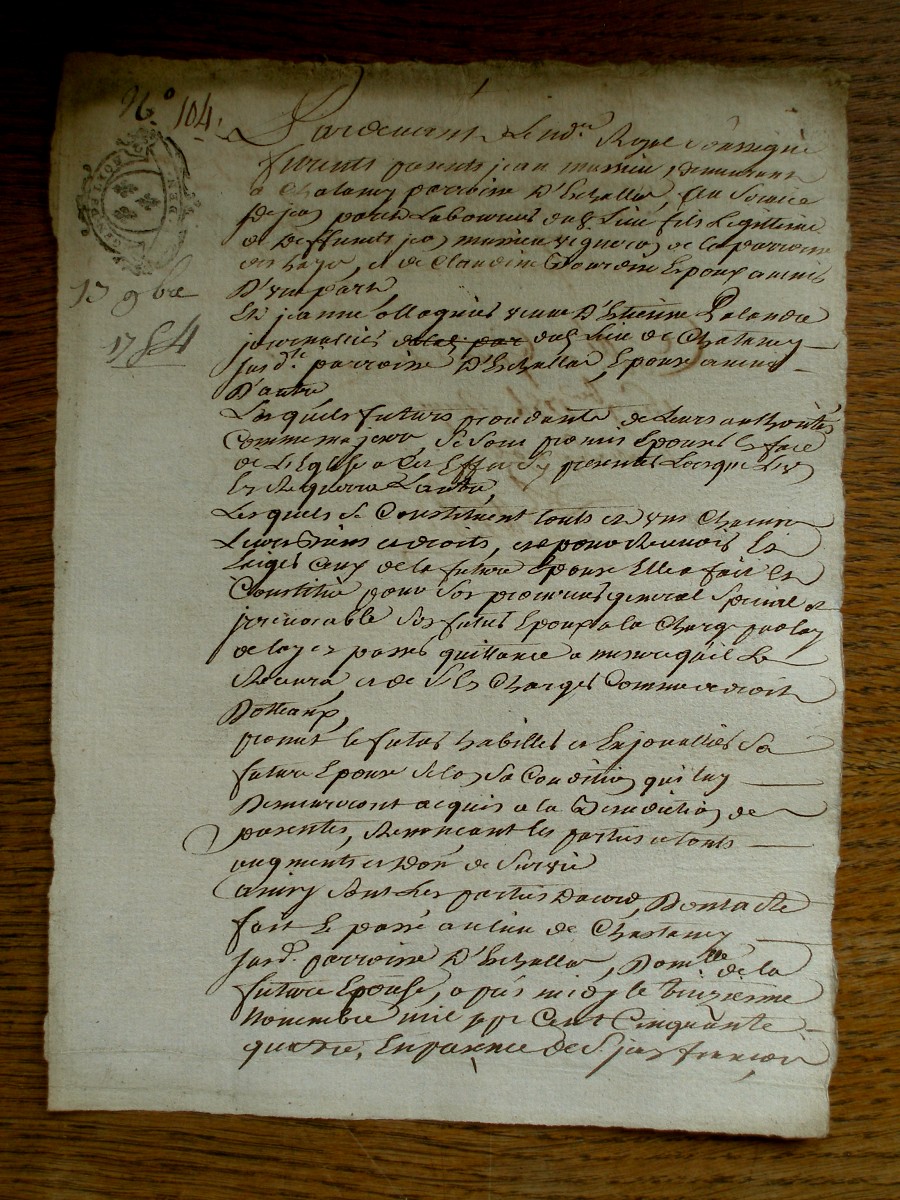 N.º 104.
13 9bre
1754
Pardevant le nore Royal soussigné
furents présents jean demeurant
a parroisse D'Echallas, au service
de jean laboureur dud. lieu fils légitime
de deffunts jean vigneron de la parroisse
des hayes, et de Claudine époux a venir
D'une part
Et jeanne veuve D'Etienne Palandre
journallier dud. lieu de Chatanay
susdte. parroisse D'Echallas, Epouse a venir
D'autre
Lesquels futurs procedants de leurs authorités
comme majeurs, se sont promis Epouser En face
de L'Eglise a cet Effet s'y presenter Lorsque L'un
En Requerra L'autre,
Lesquels se Constituent touts et uns Chacuns
Leurs Biens et droits, et pour Recevoir Et
Exiger Ceux de la future Epouse Elle a fait Et
Constitué pour son procureur general special et
irrevocable son futur Epoux a la Charge par luy
de luy En passer quittance a mesure qu'il Le
Recevra et de les Charges Comme de droit
Dotteaux,
promet le futur habiller et Enjoualler Sa
future Epouse selon sa Condition qui luy
Demeureront acquis a la Benediction
Renonçant les parties a touts
augments et Don de survie
ainsy sont Les parties Dacord, Dont acte
fait Et passé au lieu de Chatanay
susd. parroisse D'Echallas, Domille. de la
future Epouse, après midy le treizieme
Novembre mil sept Cent Cinquante
quatre, En presence de Sr. jean françois